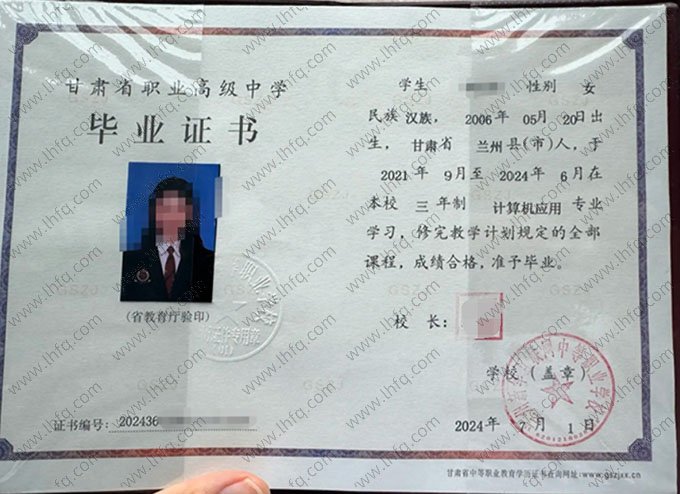 甘肃省职业高级中学
毕业证书
(省教育厅验印)
证书编号: 202436
学生 性别 女
民族 汉族, 2006年 05月 20日出
生, 甘肃省 兰州 县(市)人, 于
2021年 9月至 2024年 6月在
本校 三 年制 计算机应用 专业
学习, 修完教学计划规定的全部
课程, 成绩合格, 准予毕业。
校 长:
学校 (盖章)
2024年 7月 1日
甘肃省中等职业教育学历证书查询网址:www.gszjxx.cn
www.lhfq.com
GSZJ